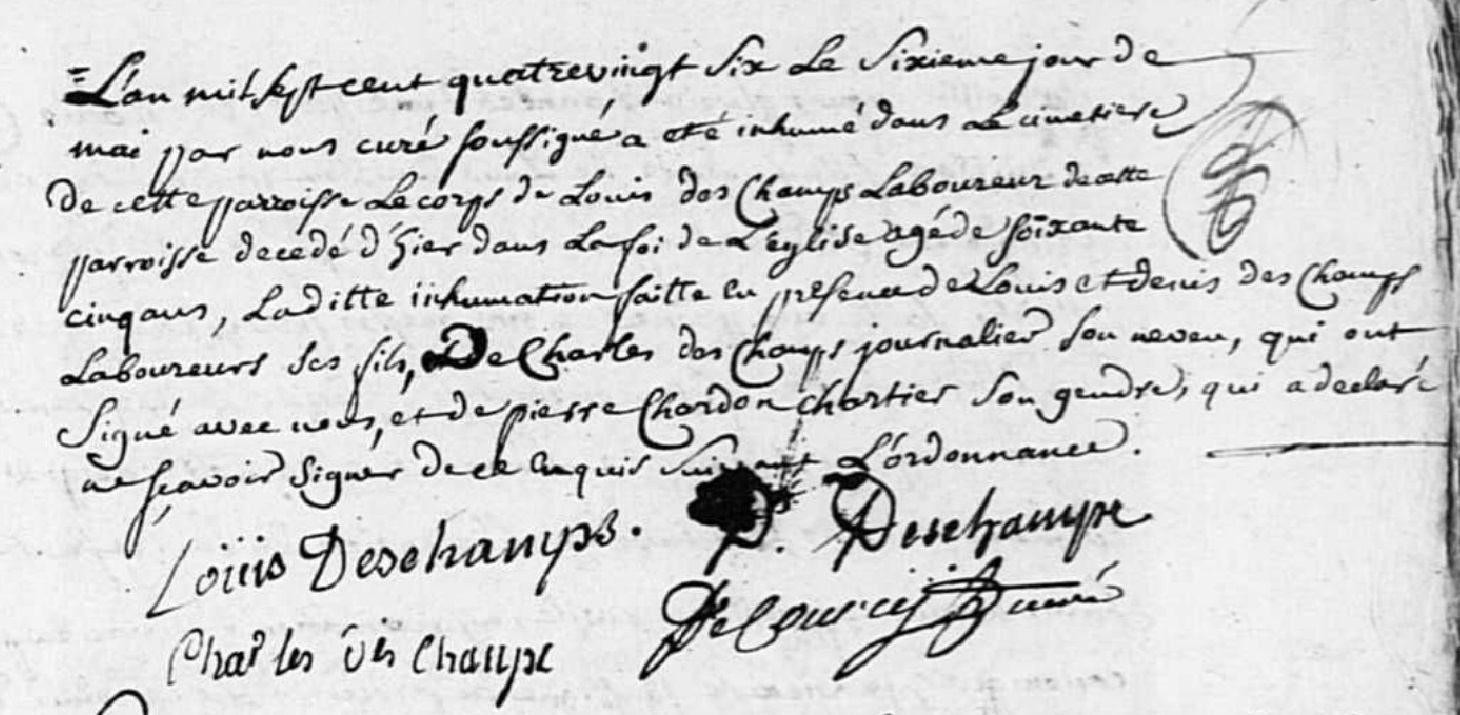 L'an mil sept cent quatrevingt six Le Sixieme jour de
mai par nous curé soussigné a eté inhumé dans Le cimetiere
De cette parroisse Le corps de Louis des Champs Laboureur de cette
parroisse decedé d'hier dans La foi de L'eglise agé de soixante
cinq ans, La ditte inhumation faitte en presence de Louis et denis des Champs
Laboureurs ses fils, De Charles des Champs journalier son neveu, qui ont
Signé avec nous, et de pierre Chardon chartier son gendre, qui a declaré
ne sçavoir Signer de ce Enquis suivant L'ordonnance.
Louis Deschamps. D. Deschamps
Charles des Champs curé